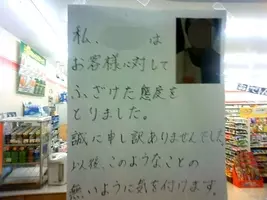 私、 は
お客様に対して
ふざけた態度を
とりました。
誠に申し訳ありませんでした。
以後、このようなことの
無いように気を付けます。